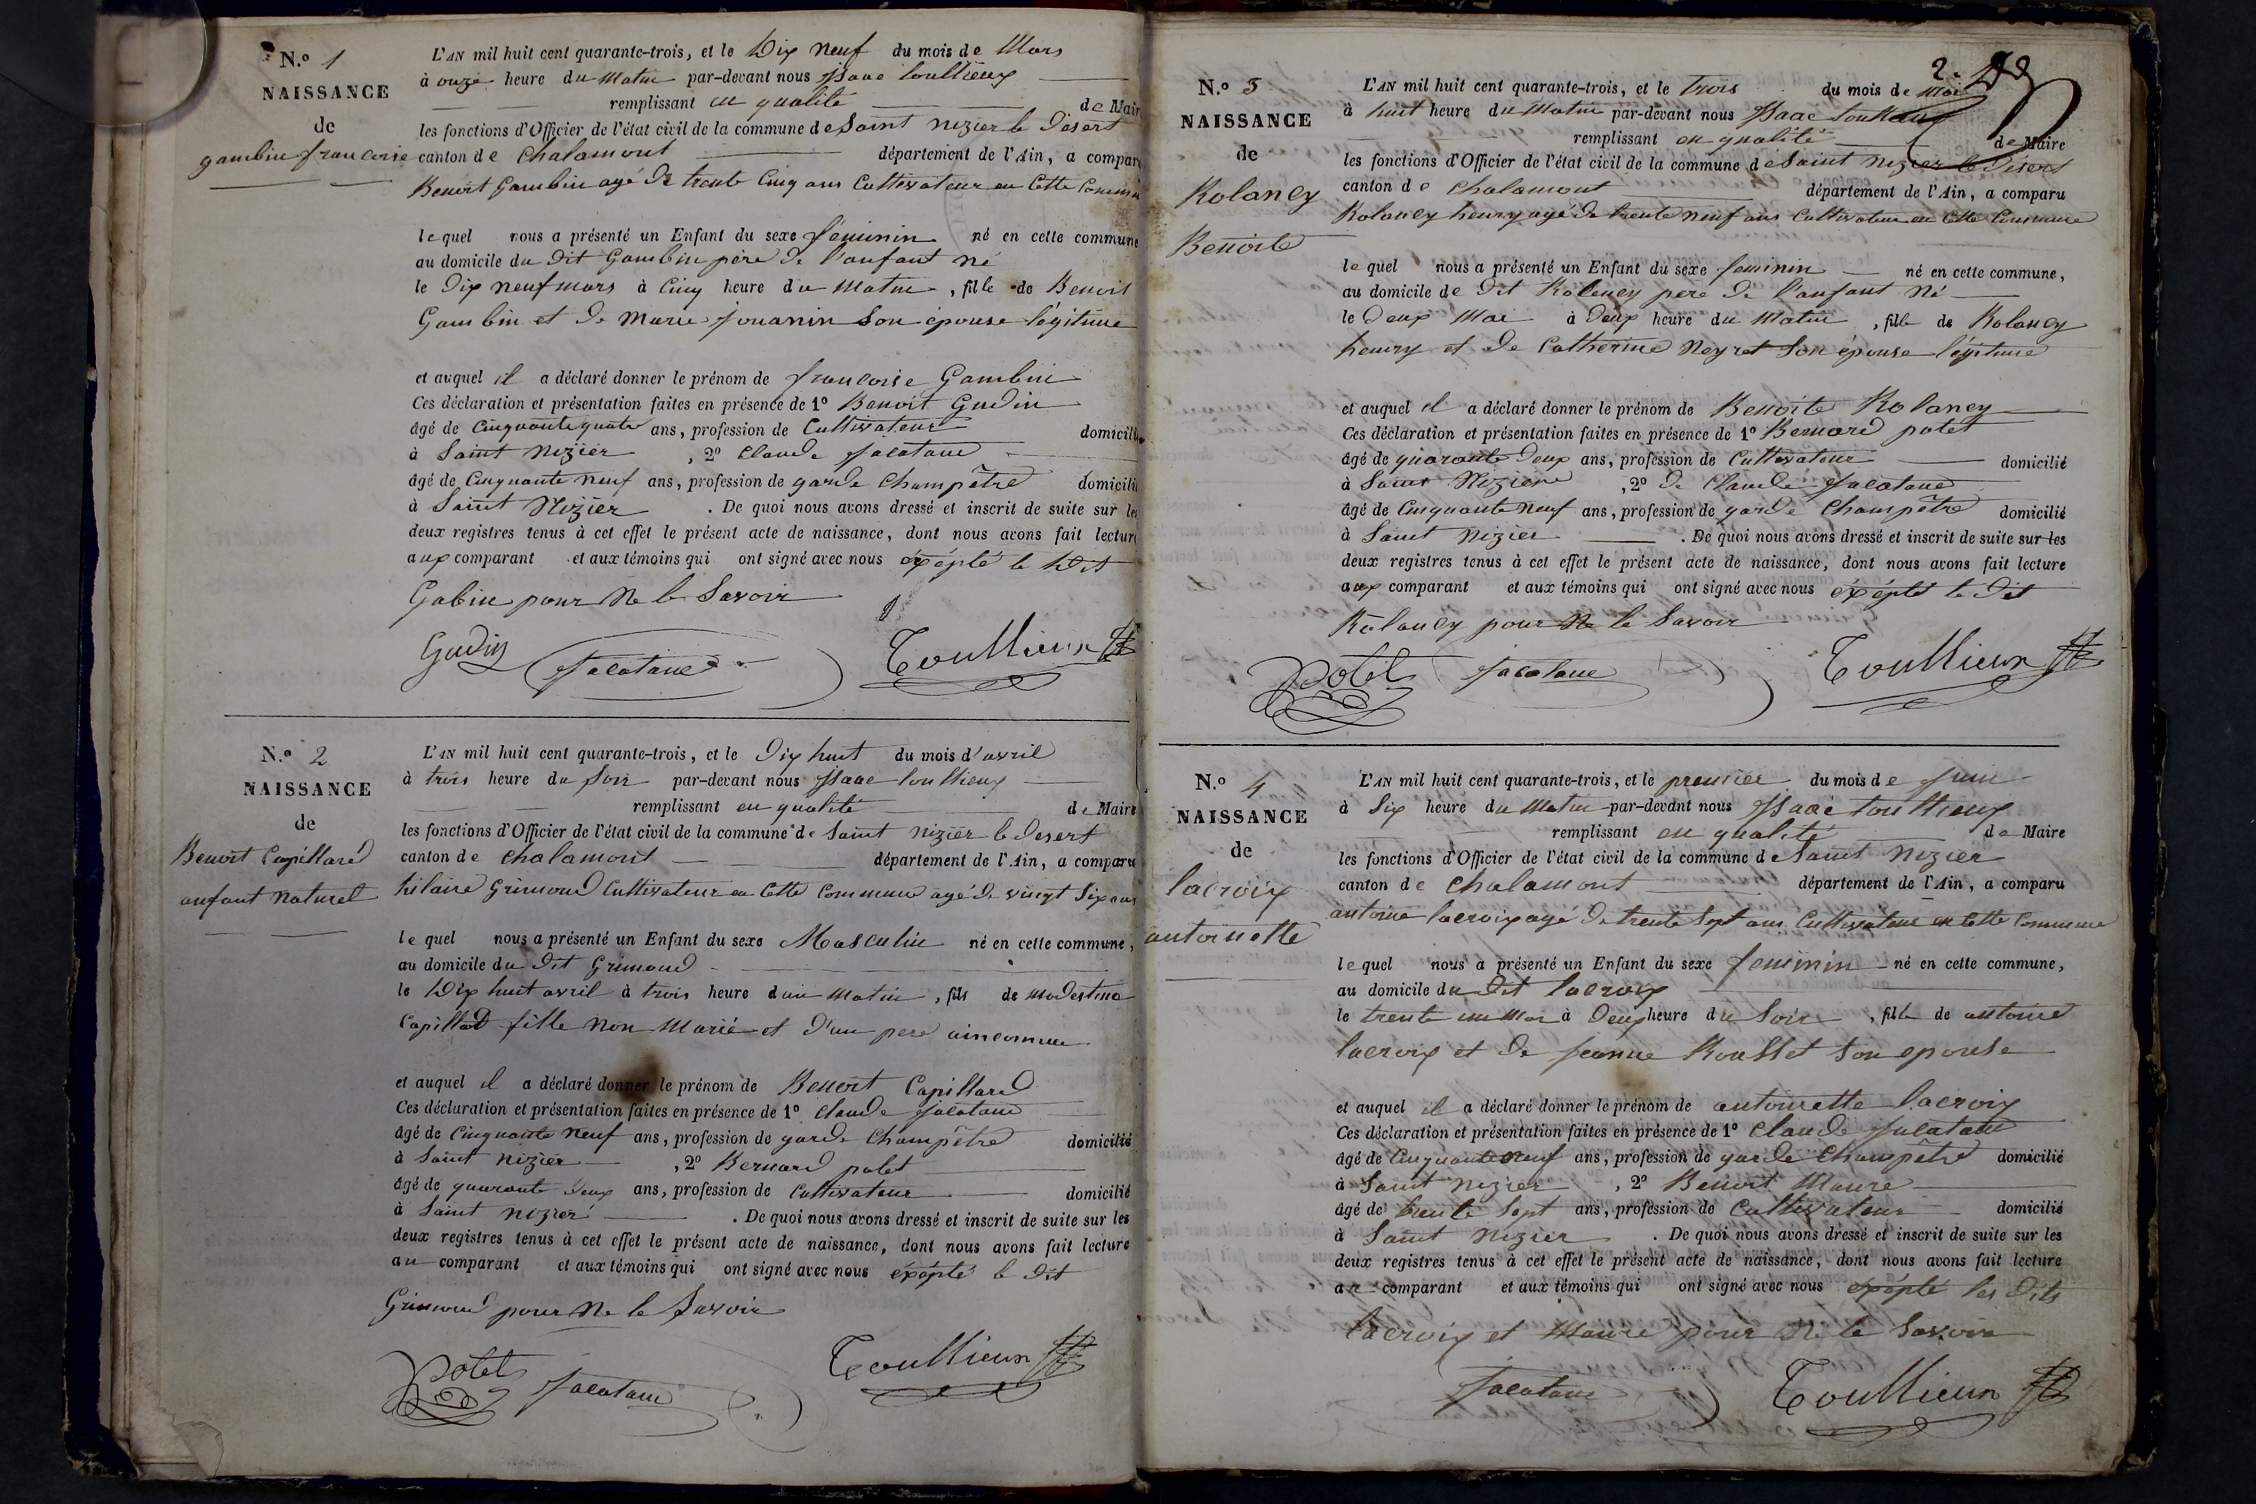 N.º 1
NAISSANCE
de
gambin francoise
L'AN mil huit cent quarante-trois, et le Dix neuf du mois de Mars
à onze heure du Matin par-devant nous Isaac Toullieux
remplissant en qualité de Mair
les fonctions d'Officier de l'état civil de la commune de Saint nizier le Désert
canton de Chalamont département de l'Ain, a compar
Benoit Gambin agé de trente Cinq ans Cultivateur en Cette Commu
lequel nous a présenté un Enfant du sexe feminin né en cette commune
au domicile du dit Gambin père de l'anfant né
le Dix neuf mars à Cinq heure du Matin, fille de Benoit
Gambin et de Marie jouanin Son épouse légitime
et auquel il a déclaré donner le prénom de francoise Gambin
Ces déclaration et présentation faites en présence de 1º Benoit Gudin
âgé de Cinquante quatre ans, profession de Cultivateur domicilié
à Saint Nizier, 2º Claude Jacatane
âgé de Cinquante neuf ans, profession de garde Champêtre domicilié
à Saint Nizier. De quoi nous avons dressé et inscrit de suite sur les
deux registres tenus à cet effet le présent acte de naissance, dont nous avons fait lecture
aux comparant et aux témoins qui ont signé avec nous éxépté le Dit
Gabin pour Ne le Savoir
Gudin Jacatane Toullieux
N.º 2
NAISSANCE
de
Benoit Capillard
anfant naturel
L'AN mil huit cent quarante-trois, et le Dix huit du mois d'avril
à trois heure du Soir par-devant nous Isaac Toullieux
remplissant en qualité de Maire
les fonctions d'Officier de l'état civil de la commune de Saint nizier le Desert
canton de Chalamont département de l'Ain, a comparu
hilaire Grimoud Cultivateur en Cette Commune agé de vingt Six ans
lequel nous a présenté un Enfant du sexe Masculin né en cette commune,
au domicile du dit Grimoud
le Dix huit avril à trois heure du Matin, fils de Modestine
Capillad fille Non Marié et d'un pere ainconnu
et auquel il a déclaré donner le prénom de Benoit Capillard
Ces déclaration et présentation faites en présence de 1º Claude Jacatane
âgé de Cinquante Neuf ans, profession de garde Champêtre domicilié
à Saint nizier, 2º Bernard polet
âgé de quarante deux ans, profession de Cultivateur domicilié
à Saint nizier. De quoi nous avons dressé et inscrit de suite sur les
deux registres tenus à cet effet le présent acte de naissance, dont nous avons fait lecture
au comparant et aux témoins qui ont signé avec nous éxépté le Dit
Grimoud pour Ne le Savoir
polet Jacatane Toullieux
2.
N.º 3
NAISSANCE
de
Rolancy
Benoite
L'AN mil huit cent quarante-trois, et le trois du mois de Mai
à huit heure du Matin par-devant nous Isaac Toullieux
remplissant en qualité de Maire
les fonctions d'Officier de l'état civil de la commune de Saint Nizier le Désert
canton de Chalamont département de l'Ain, a comparu
Rolancy henry agé de trente neuf ans Cultivateur en Cette Commune
lequel nous a présenté un Enfant du sexe feminin né en cette commune,
au domicile de dit Rolancy pere de l'anfant Né
le Deux Mai à Deux heure du Matin, fille de Rolancy
henry et de Catherine Neyret Son épouse légitime
et auquel il a déclaré donner le prénom de Benoite Rolancy
Ces déclaration et présentation faites en présence de 1º Bernard polet
âgé de quarante Deux ans, profession de Cultivateur domicilié
à Saint Niziere, 2º de Claude Jacatane
âgé de Cinquante Neuf ans, profession de garde Champêtre domicilié
à Saint Nizier. De quoi nous avons dressé et inscrit de suite sur les
deux registres tenus à cet effet le présent acte de naissance, dont nous avons fait lecture
aux comparant et aux témoins qui ont signé avec nous éxépté le Dit
Rolancy pour Ne le Savoir
polet Jacatane Toullieux
N.º 4
NAISSANCE
de
lacroix
antoinette
L'AN mil huit cent quarante-trois, et le premier du mois de Juin
à Six heure du Matin par-devant nous Isaac Toullieux
remplissant en qualité de Maire
les fonctions d'Officier de l'état civil de la commune de Saint Nizier
canton de Chalamont département de l'Ain, a comparu
antoine lacroix agé de trente Sept ans Cultivateur en Cette Commune
lequel nous a présenté un Enfant du sexe feminin né en cette commune,
au domicile du dit lacroix
le trente un Mai à Deux heure du Soir, fille de antoine
lacroix et de Jeanne Rousset Son epouse
et auquel il a déclaré donner le prénom de antoinette lacroix
Ces déclaration et présentation faites en présence de 1º Claude Jacatane
âgé de Cinquante neuf ans, profession de garde Champêtre domicilié
à Saint Nizier, 2º Benoit Maure
âgé de trente Sept ans, profession de Cultivateur domicilié
à Saint Nizier. De quoi nous avons dressé et inscrit de suite sur les
deux registres tenus à cet effet le présent acte de naissance, dont nous avons fait lecture
au comparant et aux témoins qui ont signé avec nous éxépté les Dits
lacroix et Maure pour Ne le Savoir
Jacatane Toullieux